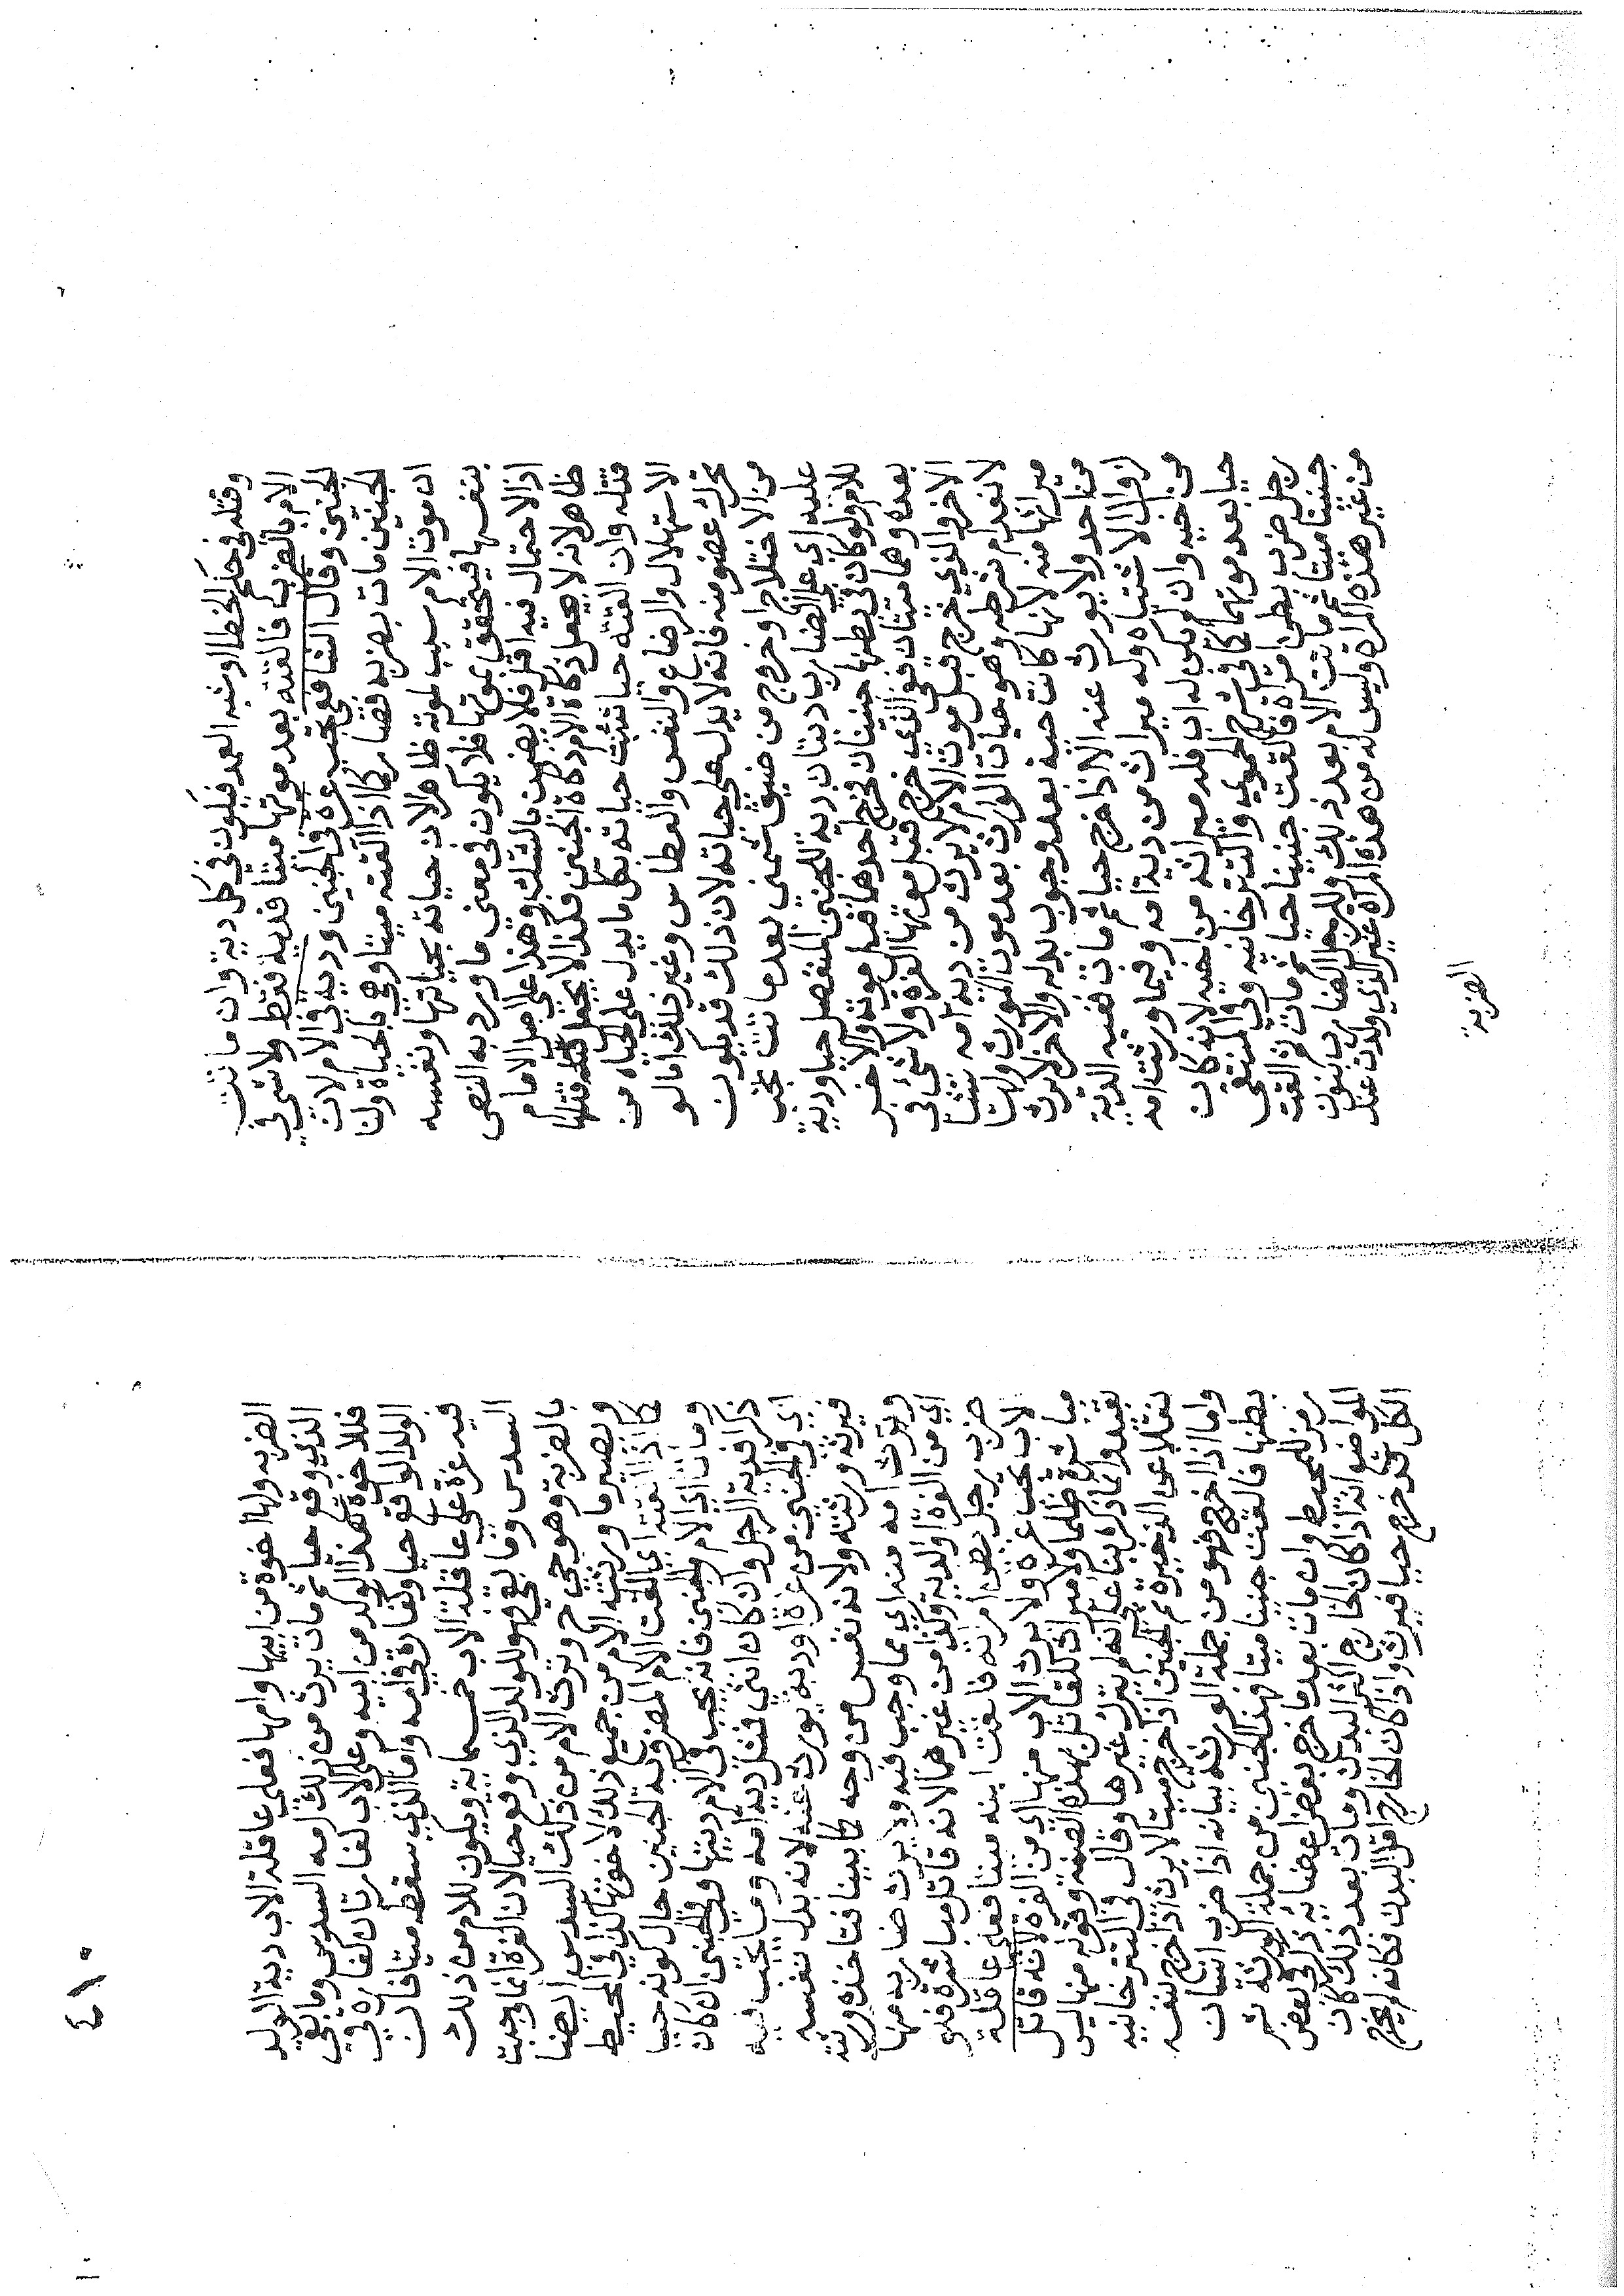 وقتله في حكم الخطا اوشبه العمد فيكون في كل دية وان ماتت
الام بالضرب فالقته بعد موتها ميتا فدية فقط ولا شي في
الجنين وقال الشافعي تجب غره في الجنين ودية في الام لان
الجنين مات بضربه فصار كما اذا القته ميتا وهي بالحياة ولنا
ان موت الام سبب لموته ظاهرا لان حياته بحياتها وتنفسه
بنفسها فيتحقق بموتها فلا يكون في معني ما ورد به النص
اذ الاحتمال فيه اقل فلا يضمن بالشك وهذا علي اصل الامام
ظاهر لانه لا يجعل ذكاة الام ذكاة الجنين فكذا لا يجعل قتلها
قتله وان القته حيا تثبت حياته بكل ما يدل علي الحياه من
الاستهلال والرضاع والنفس والعطاس وغير ذلك اما لو
تحرك عضو منه فانه لا يدل علي حياته لان ذلك قد يكون
من الاختلاج او خروج من ضيق بعد ما تت تجب
عليه اي علي الضارب ديتان دية للجنين المنفصل حيا ودية
للام ولو كان في بطنها جنينان فخرج احدهما قبل موته والاخر
بعده وهما ميتان ففي الذي خرج قبل موتها الغرة ولا شئ في
الاخر والذي خرج قبل موت الام لا يرث من دية امه شيئا
لانعدام شرطه وهو حيات الوارث بعد موت المورث ولها
ميراثها منه لانها كانت حية بعد وجوب بدله والاخر لا يرث
من احد ولا يورث عنه الا اذا خرج حيا ثم مات ففيه الدية
لزوال الاشتباه وله ميراث من دية امه وفيما ورثت امه
من اخيه وان لم يكن له اب فله ميراثه من اخيه لانه كان
حيا بعد موتهما كما في شرح الحموي والتترخانيه وفي المنتقي
رجل ضرب بطن امراة فالقت جنينا حيا ثم مات ثم القت
جنينا ميتا ثم ماتت الام بعد ذلك وللرجل الضارب بنون
من غير هذه المراة وليس له من هذه المراة غير الذي ولدت عند
الضربة
٤١٠
الضربه ولها اخوة من ابيها وامها فعلي عاقلة الاب دية الولد
الذي وقع حيا ثم مات يرث من ذلك امه السدس وما بقي
فلاخوة هذا الولد من ابيه وعلي الاب كفارتان كفارة في
الولد الواقع حيا وكفارة في امه واما الذي سقط ميتا فان
فيه غرة علي عاقلة الاب خمسماية ويكون للام من ذلك
السدس وما بقي فهو للولد الذي وقع حيا لان الغرة انما وجبت
بالضربة وهو حي وترث الام من ذلك السدس ايضا
وتصير ما ورثته الام من جميع ذلك لاخوتها كذا في المحيط
كما اذا القته اي القت الام المضروبة الجنين حال كونه حيا
وماتا اي الام والجنين فانه يجب في الام ديتها وفي الجنين ان كان
ذكرا فدية الرجل وان كان انثي فمثل دية امه وما يجب فيه
اي في الجنين من غرة او دية يورث عنه لانه بدل نفسه
فيرثه ورثته ولانه نفس من وجه كما بينا فتاخذه ورثته
وترث امه منه اي مما وجب فيه ولا يرث ضاربه منها
اي من الغرة او الدية ولذا من غيرهما لانه قاتل مباشرة فلو
ضرب رجل بطن امراته فالقت ابنه ميتا فعلي عاقلة
الاب تجب غره ولا يرث الاب منها اي من الغرة لانه قاتل
مباشرة ظلما ولا ميراث للقاتل بهذه الصفه وقوله منها ليس
بقيد وانما ذكره بنا علي انه لم يترك غيرها وقال في التترخانيه
نقلا عن الذخيرة ثم الجنين اذا خرج ميتا لا يرث اذا خرج بنفسه
واما اذا اخرج فهو من جملة الورثه بيانه اذا ضرب انسان
بطنها فالقت جنينا ميتا فهذا الجنين من جملة الورثة ثم
رمز للمحيط وان مات بعد ما خرج بعض اعضائه ذكر في بعض
المواضع انه اذا كان الخارج اكثر البدن ومات بعد ذلك كان
الكل قد خرج حيا فيرث واذا كان الخارج اقل البدن فكانه لم يخرج